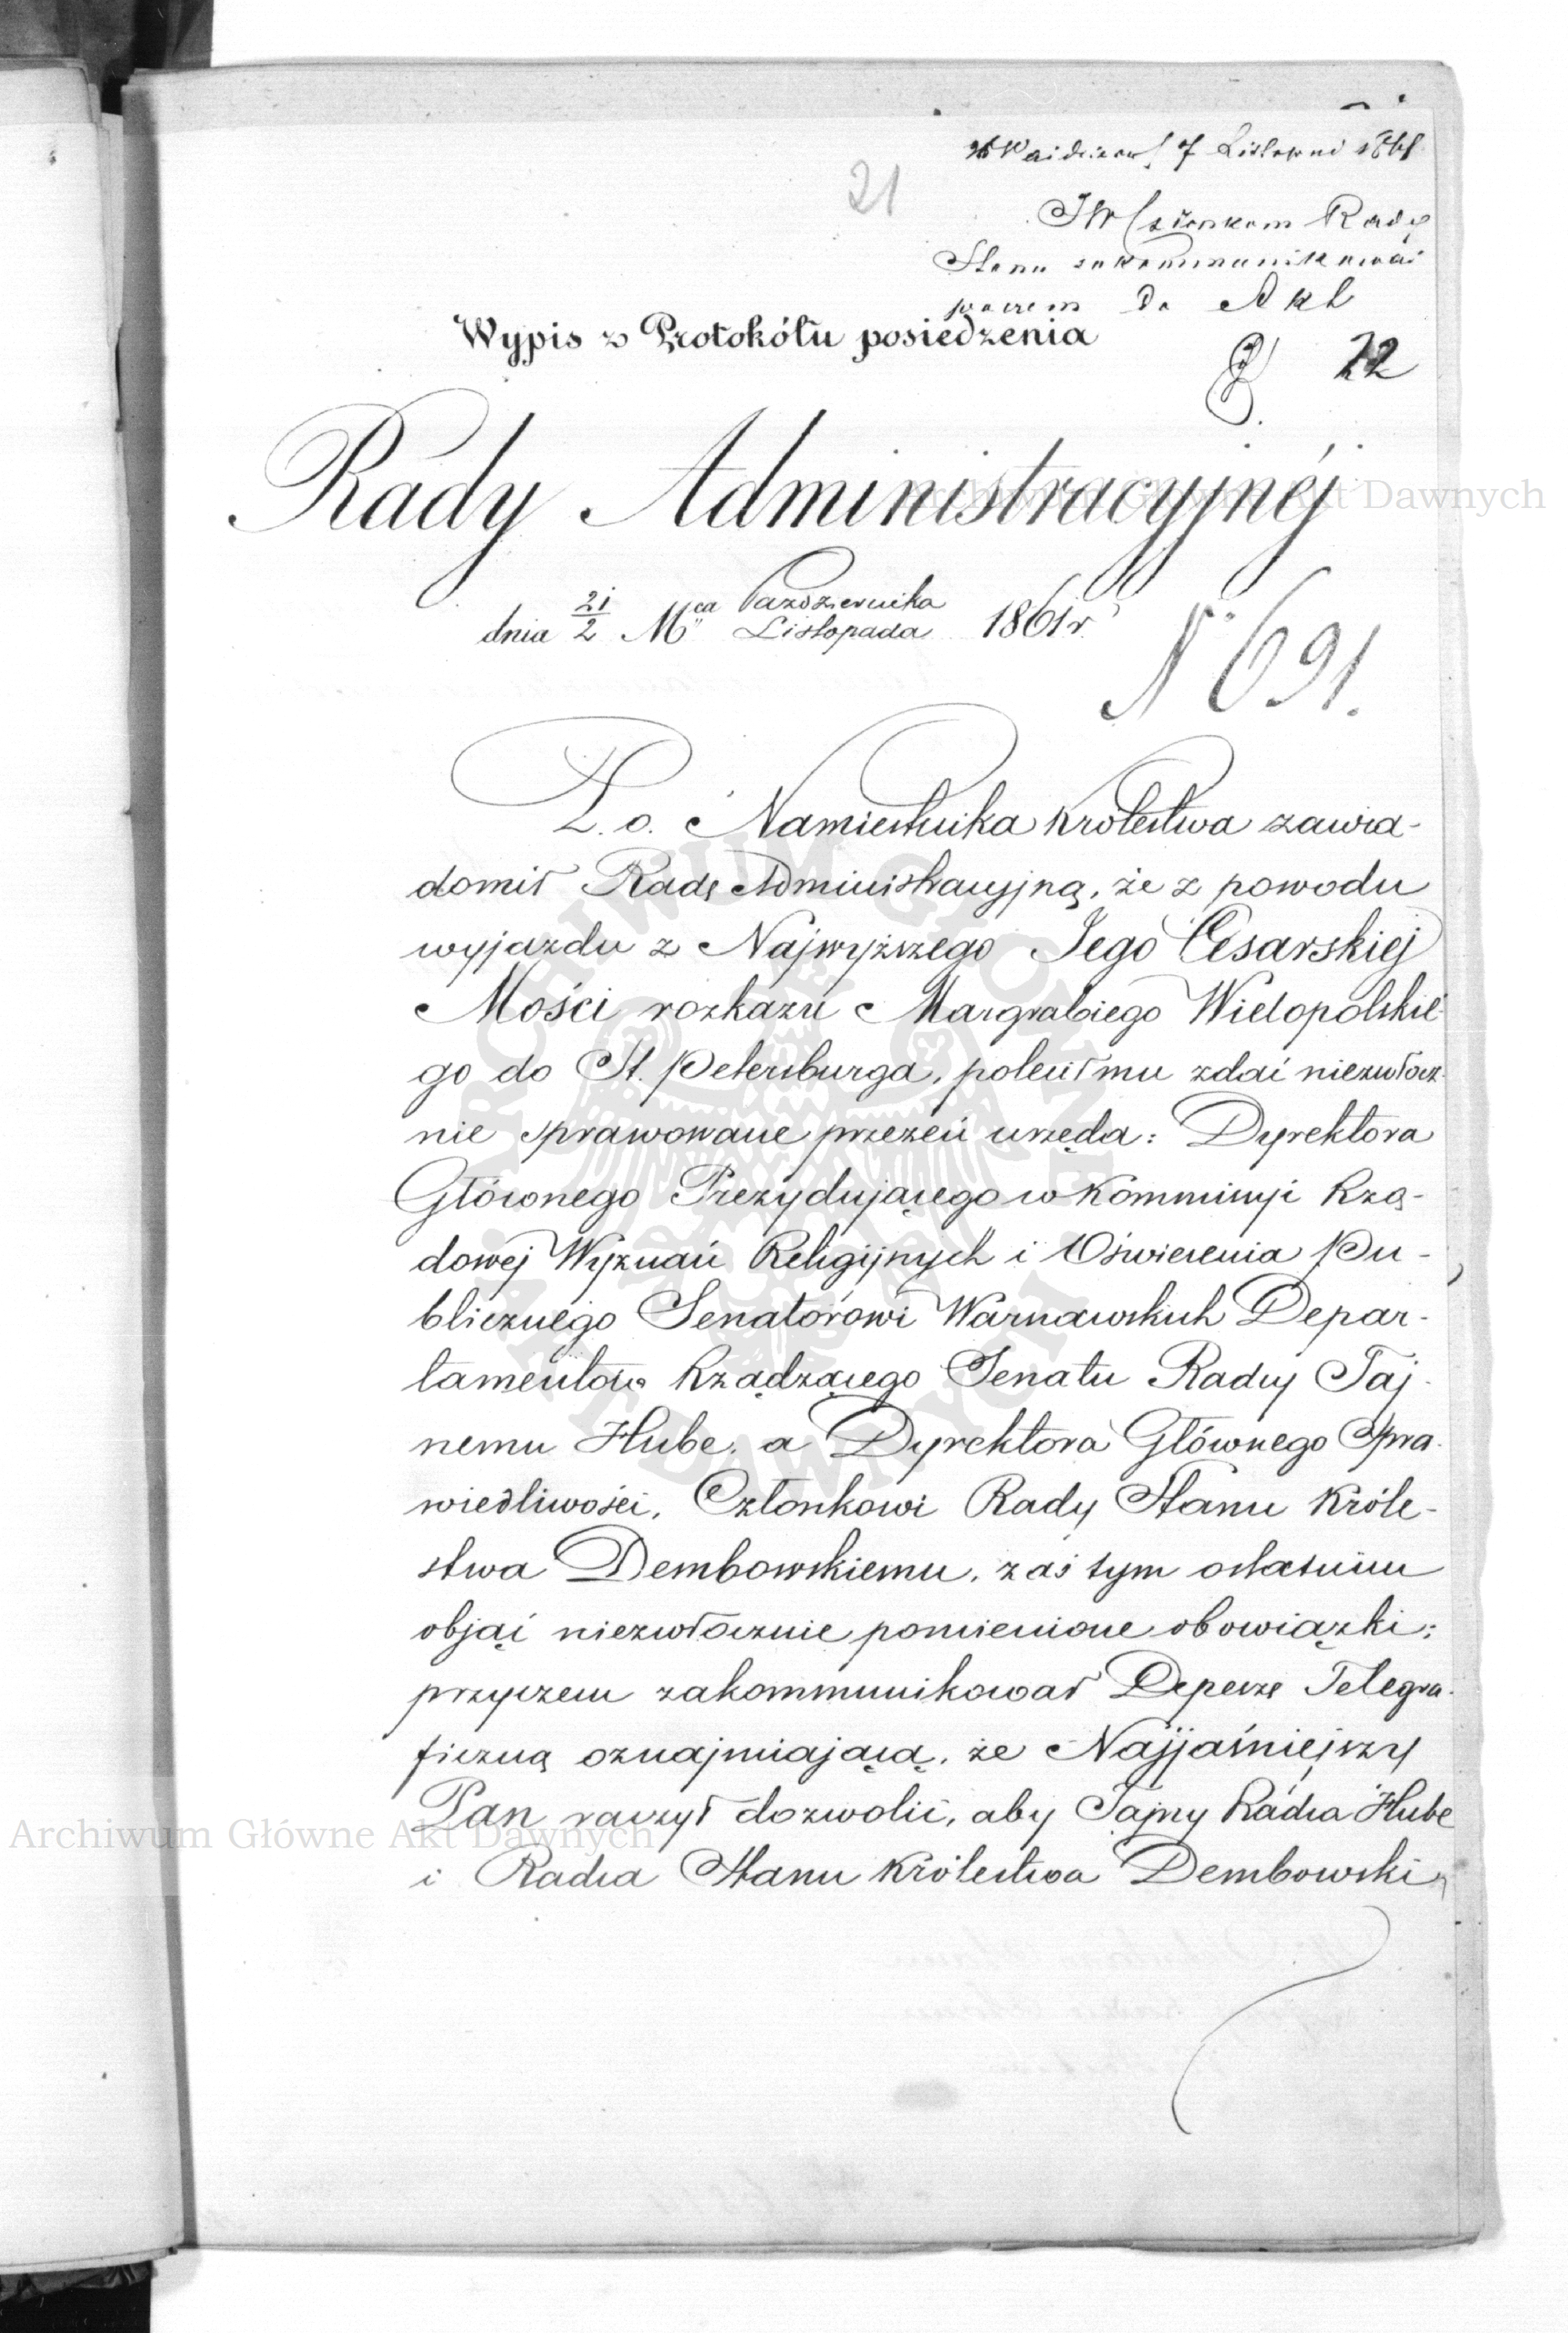 26 Października / 7 Listopad 1861
21
JW Członkom Rady
Stanu zakommunikować
poczem do Akt
Wypis z Protokółu posiedzenia
22
Rady Administracyjnéj
dnia 21/2 Mca Października/Listopada 1861 r.
N 691.
P. o. Namiestnika Królestwa zawia-
domił Radę Administracyjną, że z powodu
wyjazdu z Najwyższego Jego Cesarskiej
Mości rozkazu Margrabiego Wielopolskie-
go do St. Petersburga, polecił mu zdać niezwłocz-
nie sprawowane przezeń urzęda: Dyrektora
Głównego Prezydującego w Kommissyi Rzą-
dowej Wyznań Religijnych i Oświecenia Pu-
blicznego Senatorowi Warszawskich Depar-
tamentów Rządzącego Senatu Radcy Taj-
nemu Hube, a Dyrektora Głównego Spra-
wiedliwości, Członkowi Rady Stanu Króle-
stwa Dembowskiemu, zaś tym ostatnim
objąć niezwłocznie pomienione obowiązki;
przyczem zakommunikował Depeszę Telegra-
ficzną oznajmiającą, że Najjaśniejszy
Pan raczył dozwolić, aby Tajny Radca Hube
i Radca Stanu Królestwa Dembowski
Archiwum Główne Akt Dawnych
Archiwum Główne Akt Dawnych
ARCHIWUM GŁÓWNE AKT DAWNYCH